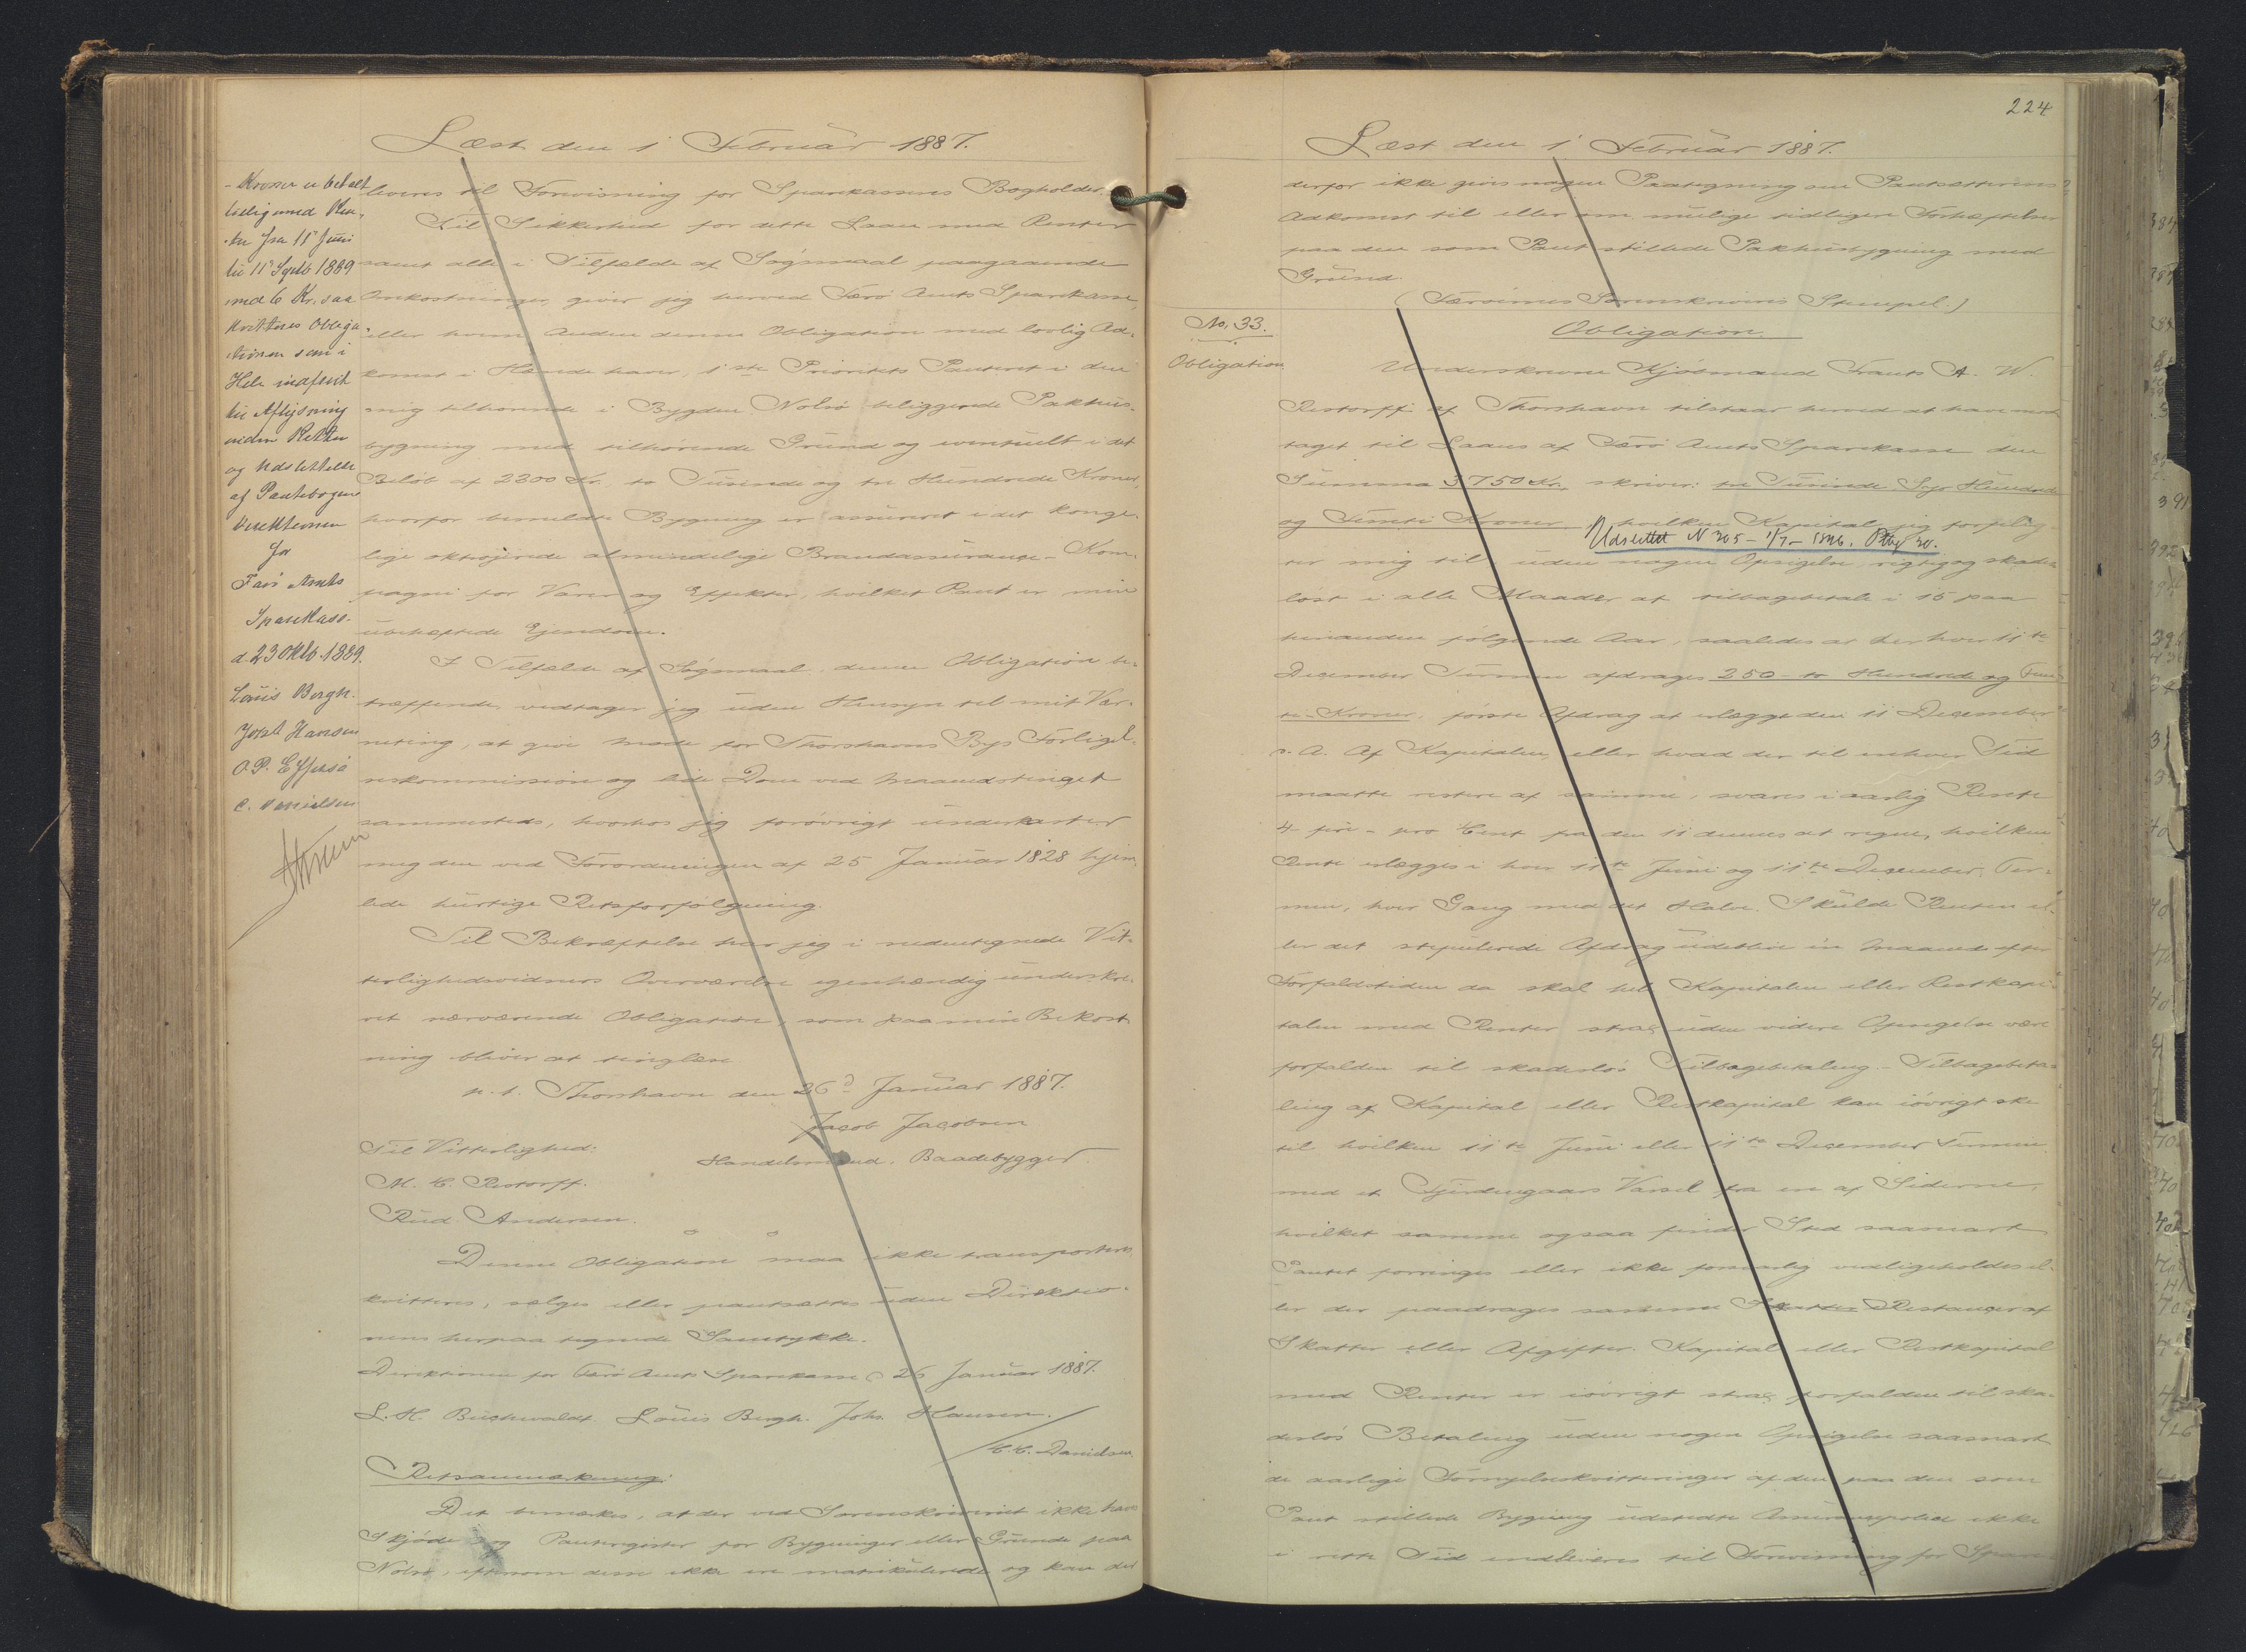 Læst den 1 Februar 1887.
- Kroner er betalt
tillig med Ren-
ter fra 11 Juni
til 11 Septb 1889
med 6 Kr. saa
kvitteres Obliga-
tionen som i
Hele indfriet
til Aflysning
inden Retten
og Udslettelse
af Pantebogen
Direktionen
for
Færø Amts
Sparekasse
d. 23 Oktb. 1889.
Louis Bergh.
Johs Hansen
O. P. Effersö
C. Danielsen
leveres til Forevisning for Sparekassens Bogholder.
Til Sikkerhed for dette Laan med Renter
samt alle i Tilfælde af Søgsmaal paagaaende
Omkostninger, giver jeg herved Færø Amts Sparekasse,
eller hvem Anden denne Obligation med lovlig Ad-
komst i Hænde haver, 1ste Prioritets Panteret i den
mig tilhørende i Bygden Nolsö beliggende Pakhus-
bygning med tilhørende Grund og eventuelt i det
Beløb af 2300 Kr. to Tusinde og tre Hundrede Kroner,
hvorfor bemeldte Bygning er assureret i det konge-
lige oktrojerede almindelige Brandassurance-Kom-
pagni for Varer og Effekter, hvilket Pant er min
ubehæftede Ejendom.
I Tilfælde af Søgsmaal denne Obligation be-
træffende, vedtager jeg uden Hensyn til mit Vær-
neting, at give Møde for Thorshavns Byes Forligel-
seskommission og lide Dom ved Maanedstinget
sammesteds, hvorhos jeg forøvrigt underkaster
mig den ved Forordningen af 25 Januar 1828 hjem-
lede hurtige Retsforfølgning.
Til Bekræftelse har jeg i undertegnede Vit-
terlighedsvidners Overværelse egenhændig underskre-
vet nærværende Obligation, som paa min Bekost-
ning bliver at tinglæse
p. t. Thorshavn den 26d Januar 1887.
Jacob Jacobsen
Handelsmand, Baadebygger.
Til Vitterlighed:
M. C. Restorff.
Rud Andersen.
Denne Obligation maa ikke transporteres,
kvitteres, sælges eller pantsættes uden Direktio-
nens herpaa tegnede Samtykke.
Direktionen for Færø Amts Sparekasse d 26 Januar 1887.
L. H. Buchwaldt. Louis Bergh. Johs Hansen.
/ C. C. Danielsen
Retsanmærkning:
Det bemærkes, at der ved Sorenskriveriet ikke haves
Skjøde- og Panteregister for Bygninger eller Grunde paa
Nolsö, eftersom disse ikke ere matrikulerede og kan der
224
Læst den 1 Februar 1887.
derfor ikke gives nogen Paategning om Pantsætterens
Adkomst til eller om mulige tidligere Forhæftelser
paa den som Pant stillede Pakhusbygning med
Grund.
(Færøernes Sorenskriveris Stempel.)
No. 33.
Obligation
Obligation.
Underskrevne Kjøbmand Frants A. W.
Restorff af Thorshavn tilstaar herved at have mod-
taget til Laans af Færø Amts Sparekasse den
Summa 3750 Kr. skriver: tre Tusinde Syv Hundrede
og Femti Kroner, hvilken Kapital jeg forplig-
Udslettet N 305 - 1/7 - 1896. Ptbg 30.
ter mig til uden nogen Opsigelse rigtig og skades-
løst i alle Maader at tilbagebetale i 15 paa
hinanden følgende Aar, saaledes at der hver 11te
December Termin afdrages 250 - to Hundrede og Fem-
ti - Kroner, første Afdrag at erlægge den 11 December
d. A. Af Kapitalen, eller hvad der til enhver Tid
maatte restere af samme, svares i aarlig Rente
4 - fire - pro Cent fra den 11 dennes at regne, hvilken
Rente erlægges i hver 11te Juni og 11te December Ter-
min, hver Gang med det Halve. Skulde Renten el-
ler det stipulerede Afdrag udeblive en Maaned efter
Forfaldstiden da skal hele Kapitalen eller Restkapi-
talen med Renter strax uden videre Opsigelse være
forfalden til skadesløs Tilbagebetaling. - Tilbagebeta-
ling af Kapital eller Restkapital kan iøvrigt ske
til hvilken 11te Juni eller 11te December Termin
med et Fjerdingaars Varsel fra en af Siderne,
hvilket samme ogsaa finder Sted saasnart
Pantet forringes eller ikke forsvarlig vedligeholdes el-
ler der paadrages samme Skatter Restancer af
Skatter eller Afgifter. Kapital eller Restkapital
med Renter er iøvrigt strax forfalden til ska-
desløs Betaling uden nogen Opsigelse saasnart
de aarlige Fornyelseskvitteringer af den paa den som
Pant stillede Bygning udstedte Assurancepolice ikke
i rette Tid indleveres til Forevisning for Spare-